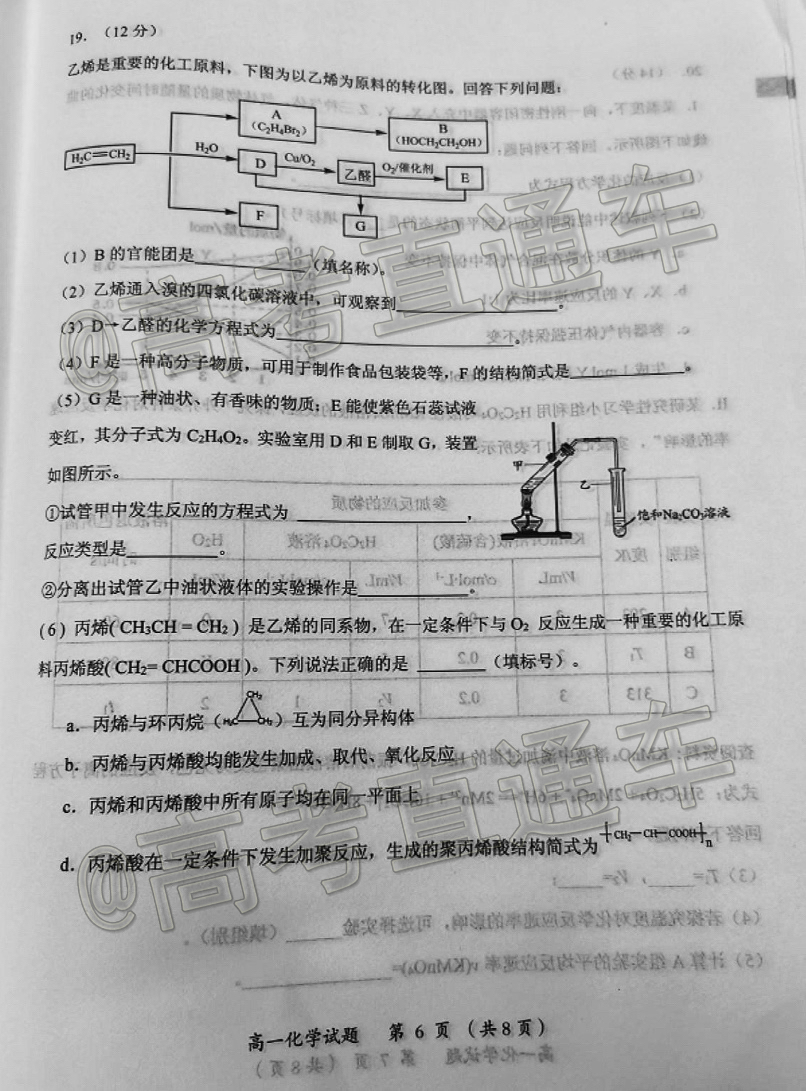 19. （12 分）
乙烯是重要的化工原料，下图为以乙烯为原料的转化图。回答下列问题：
A
(C₂H₄Br₂)
B
(HOCH₂CH₂OH)
H₂C=CH₂
H₂O
D
Cu/O₂
乙醛
O₂/催化剂
E
F
G
(1) B 的官能团是__________（填名称）。
(2) 乙烯通入溴的四氯化碳溶液中，可观察到__________。
(3) D→乙醛的化学方程式为__________。
(4) F 是一种高分子物质，可用于制作食品包装袋等，F 的结构简式是__________。
(5) G 是一种油状、有香味的物质；E 能使紫色石蕊试液
变红，其分子式为 C₂H₄O₂。实验室用 D 和 E 制取 G，装置
如图所示。
甲
乙
饱和Na₂CO₃溶液
①试管甲中发生反应的方程式为 __________，
反应类型是__________。
②分离出试管乙中油状液体的实验操作是__________。
(6) 丙烯( CH₃CH = CH₂ ) 是乙烯的同系物，在一定条件下与 O₂ 反应生成一种重要的化工原
料丙烯酸( CH₂= CHCOOH )。下列说法正确的是 ______（填标号）。
a. 丙烯与环丙烷（ CH₂ H₂C CH₂ ）互为同分异构体
b. 丙烯与丙烯酸均能发生加成、取代、氧化反应
c. 丙烯和丙烯酸中所有原子均在同一平面上
d. 丙烯酸在一定条件下发生加聚反应，生成的聚丙烯酸结构简式为 ⁅CH₂—CH—COOH⁆n
高一化学试题 第 6 页 （共 8 页）
@高考直通车
@高考直通车